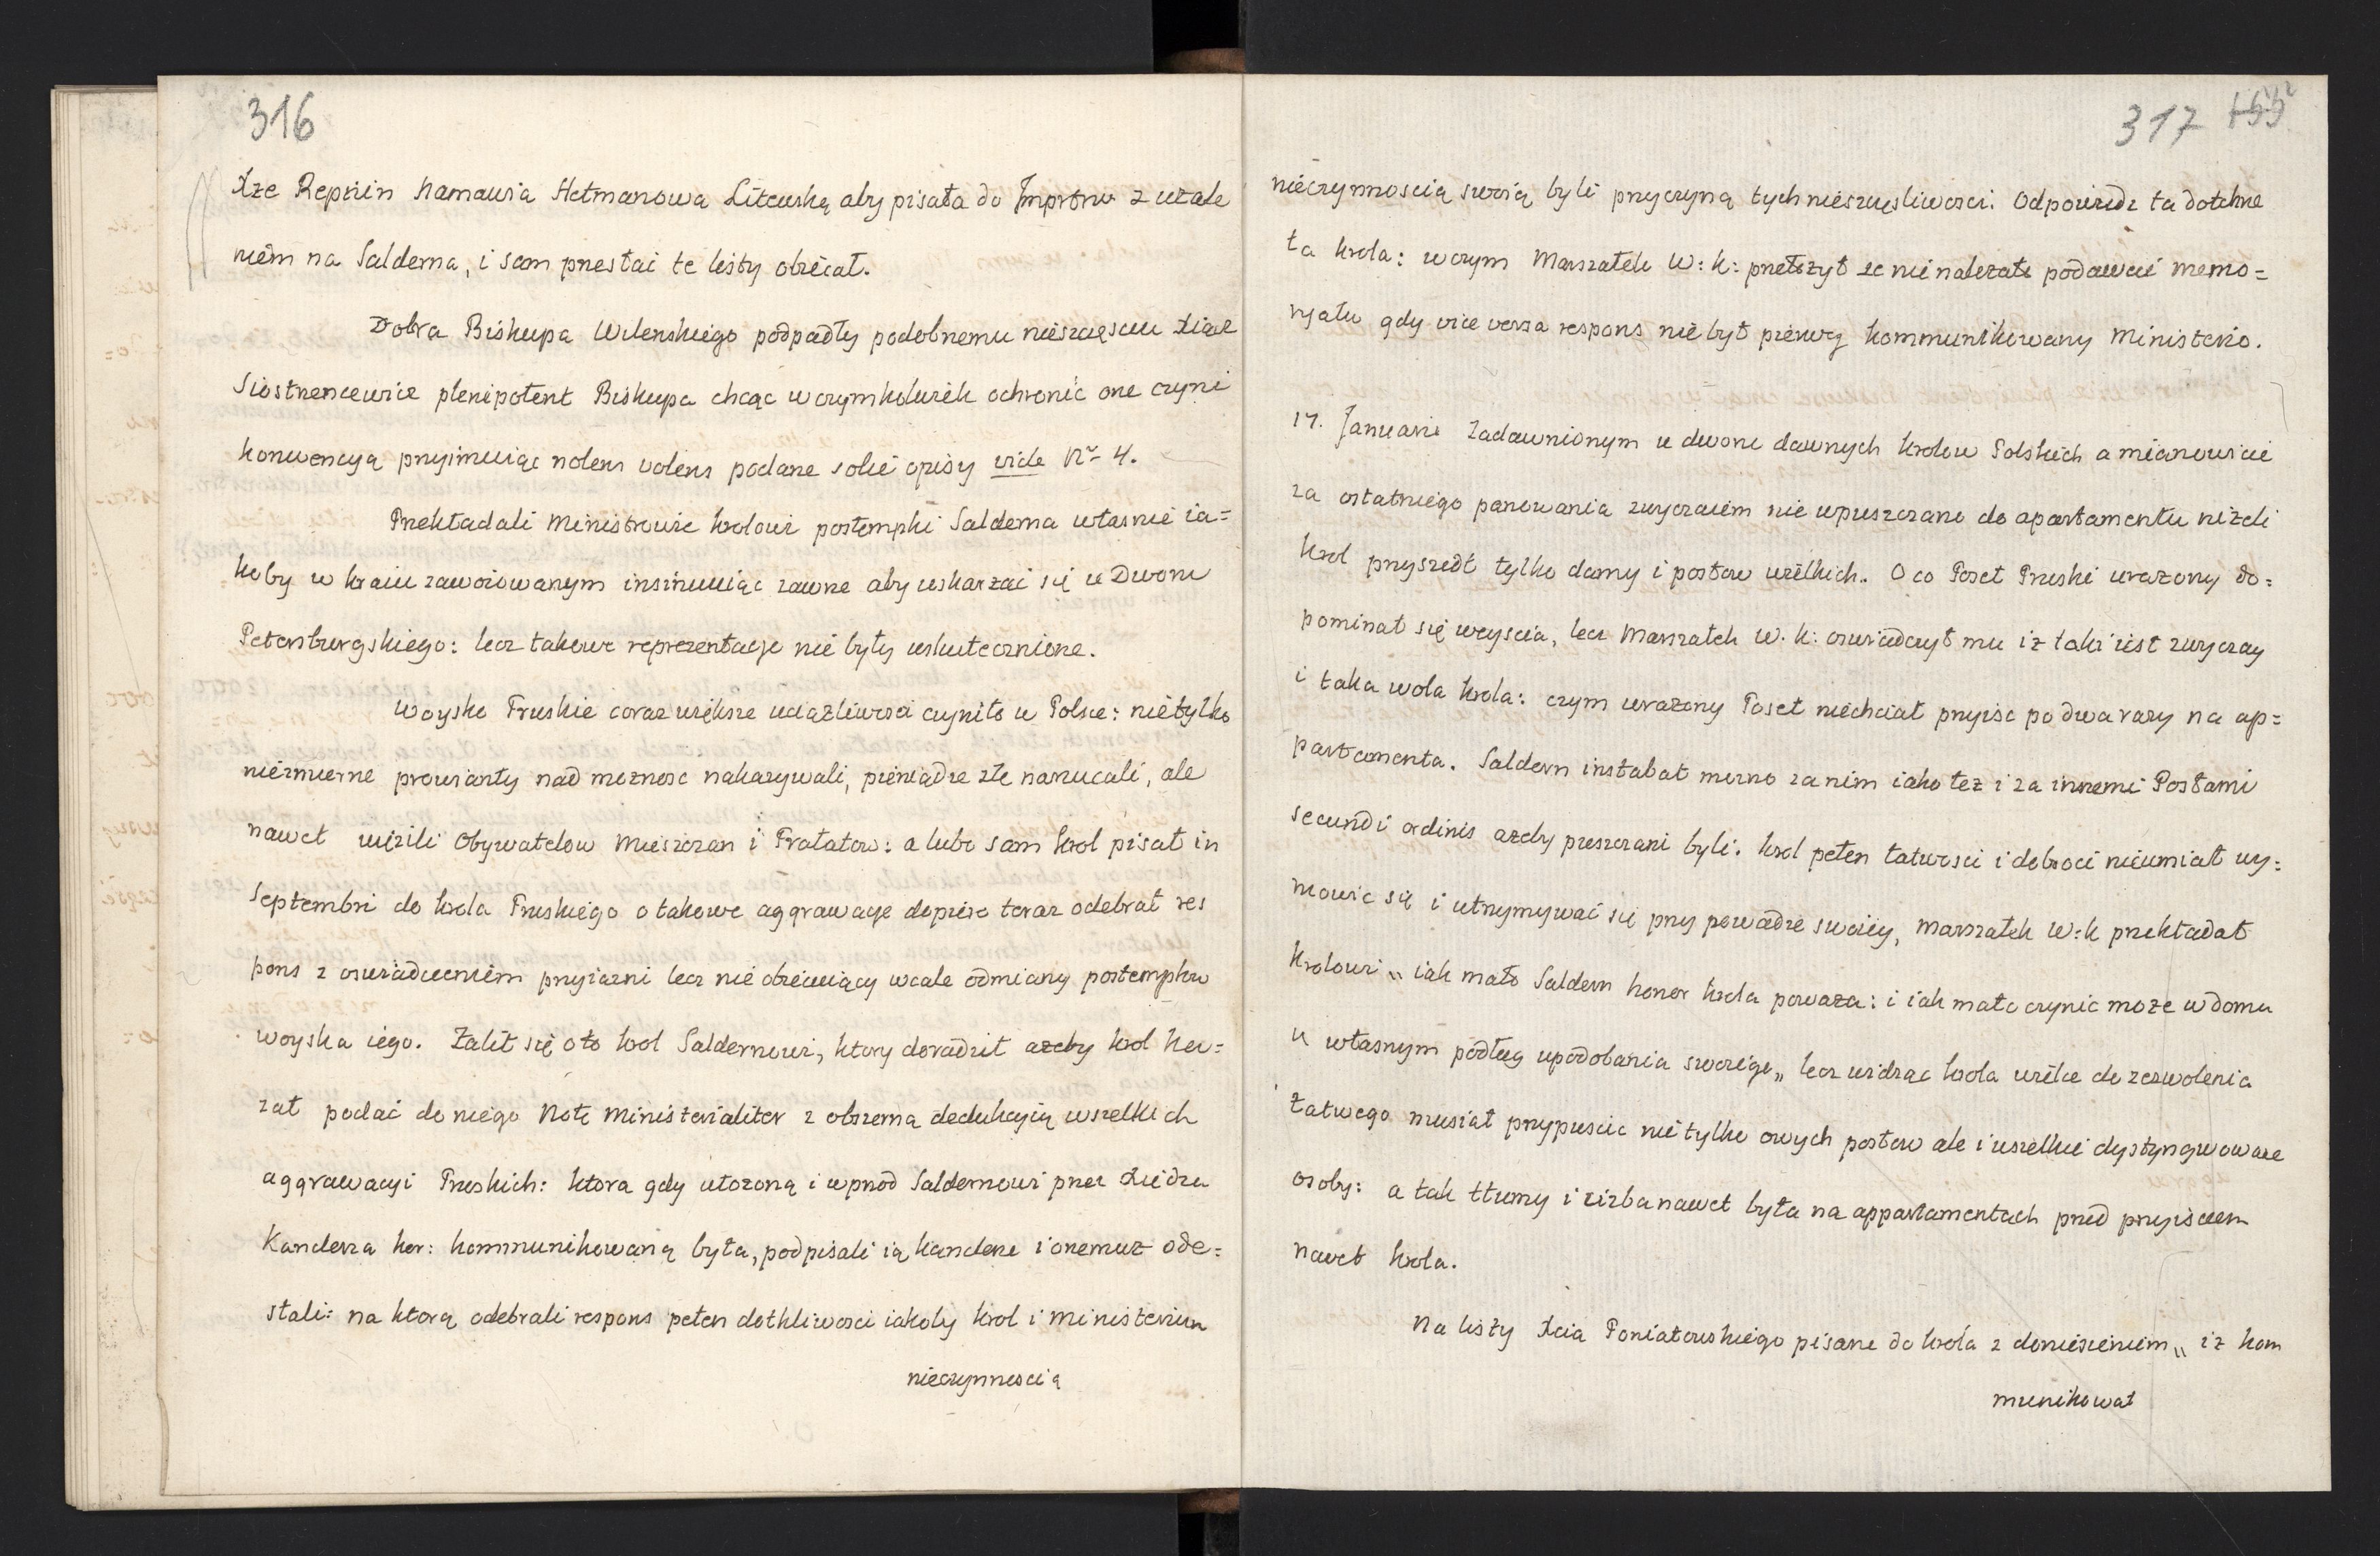 316
Xże Repnin namawia Hetmanowa Litewską aby pisała do Imprtwu z użale
niem na Salderna, i sam przesłać te listy obiecał.
Dobra Biskupa Wilenskiego podpadły podobnemu nieszczęsciu Xiąże
Siostrencewicz plenipotent Biskupa chcąc w czymkolwiek ochronić one czyni
konwencyą przyimuiąc nolens volens podane sobie opisy vide Nr 4.
Przekładali Ministrowie krolowi postempki Salderna własnie ia=
koby w kraiu zawoiowanym insinuuiąc zawsze aby uskarzać się u Dworu
Petersburgskiego: lecz takowe reprezentacje nie były uskutecznione.
Woysko Pruskie coraz większe uciążliwosci czyniło w Polsce: nie tylko
niezmierne prowianty nad moznosc nakazywali, pieniądze złe narzucali, ale
nawet więzili Obywatelow Mieszczan i Prałatow: a lubo sam krol pisał in
Septembri do krola Pruskiego o takowe aggrawacye dopiero teraz odebrał res
pons z oswiadczeniem przyiazni lecz nie obiecuiący wcale odmiany postempkow
woyska iego. Żalił się o to krol Saldernowi, ktory doradził azeby krol ka=
zał podać do niego Notę ministerialiter z obszerną dedukcyią wszelkich
aggrawacyi Pruskich: ktora gdy ułozoną i wprzod Saldernowi przez Xiedza
Kanclerza kor: kommunikowaną była, podpisali ią kanclerze i onemuz ode=
słali: na ktorą odebrali respons pełen dotkliwosci iakoby krol i ministerium
nieczynnoscią
317
nieczynnoscią swoią byli przyczyną tych nieszczęsliwosci. Odpowiedz ta dotchnę
ła krola: w czym Marszałek W: k: przełożył że nie należało podawać memo=
ryału gdy vice versa respons nie był pierwej kommunikowany Ministerio.
17. Januarii Zadawnionym u dworu dawnych krolow Polskich a mianowicie
za ostatniego panowania zwyczaiem nie wpuszczano do apartamentu niżeli
krol przyszedł tylko damy i posłow wielkich. O co Poseł Pruski urazony do=
pominał się weyscia, lecz Marszałek W. k: oswiadczył mu iz taki iest zwyczay
i taka wola krola: czym urazony Poseł niechciał przyisc po dwa razy na ap=
partamenta. Saldern instabat mocno za nim iako też i za innemi Posłami
secundi ordinis azeby puszczani byli. krol pełen łatwosci i dobroci nieumiał wy=
mowic się i utrzymywać się przy powadze swoiey, Marszałek W:k przekładał
krolowi „ iak mało Saldern honor krola poważa: i iak mało czynic może w domu
u własnym podług upodobania swoiego „ lecz widząc krola wielce do zezwolenia
łatwego musiał przypuscic nie tylko owych posłow ale i wszelkie dystyngwowane
osoby: a tak tłumy i ciżba nawet była na appartamentach przed przyisciem
nawet krola.
Na listy Xcia Poniatowskiego pisane do krola z doniesieniem „ iz kom
munikował